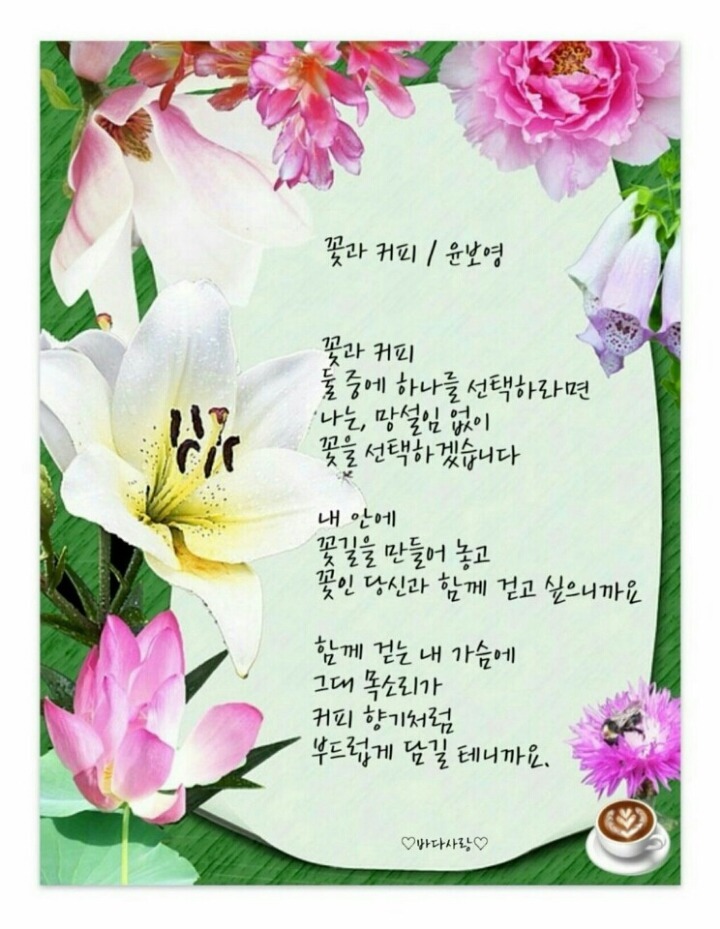 꽃과 커피 / 윤보영
꽃과 커피
둘 중에 하나를 선택하라면
나는, 망설임 없이
꽃을 선택하겠습니다
내 안에
꽃길을 만들어 놓고
꽃인 당신과 함께 걷고 싶으니까요
함께 걷는 내 가슴에
그대 목소리가
커피 향기처럼
부드럽게 담길 테니까요.
♡바다사랑♡